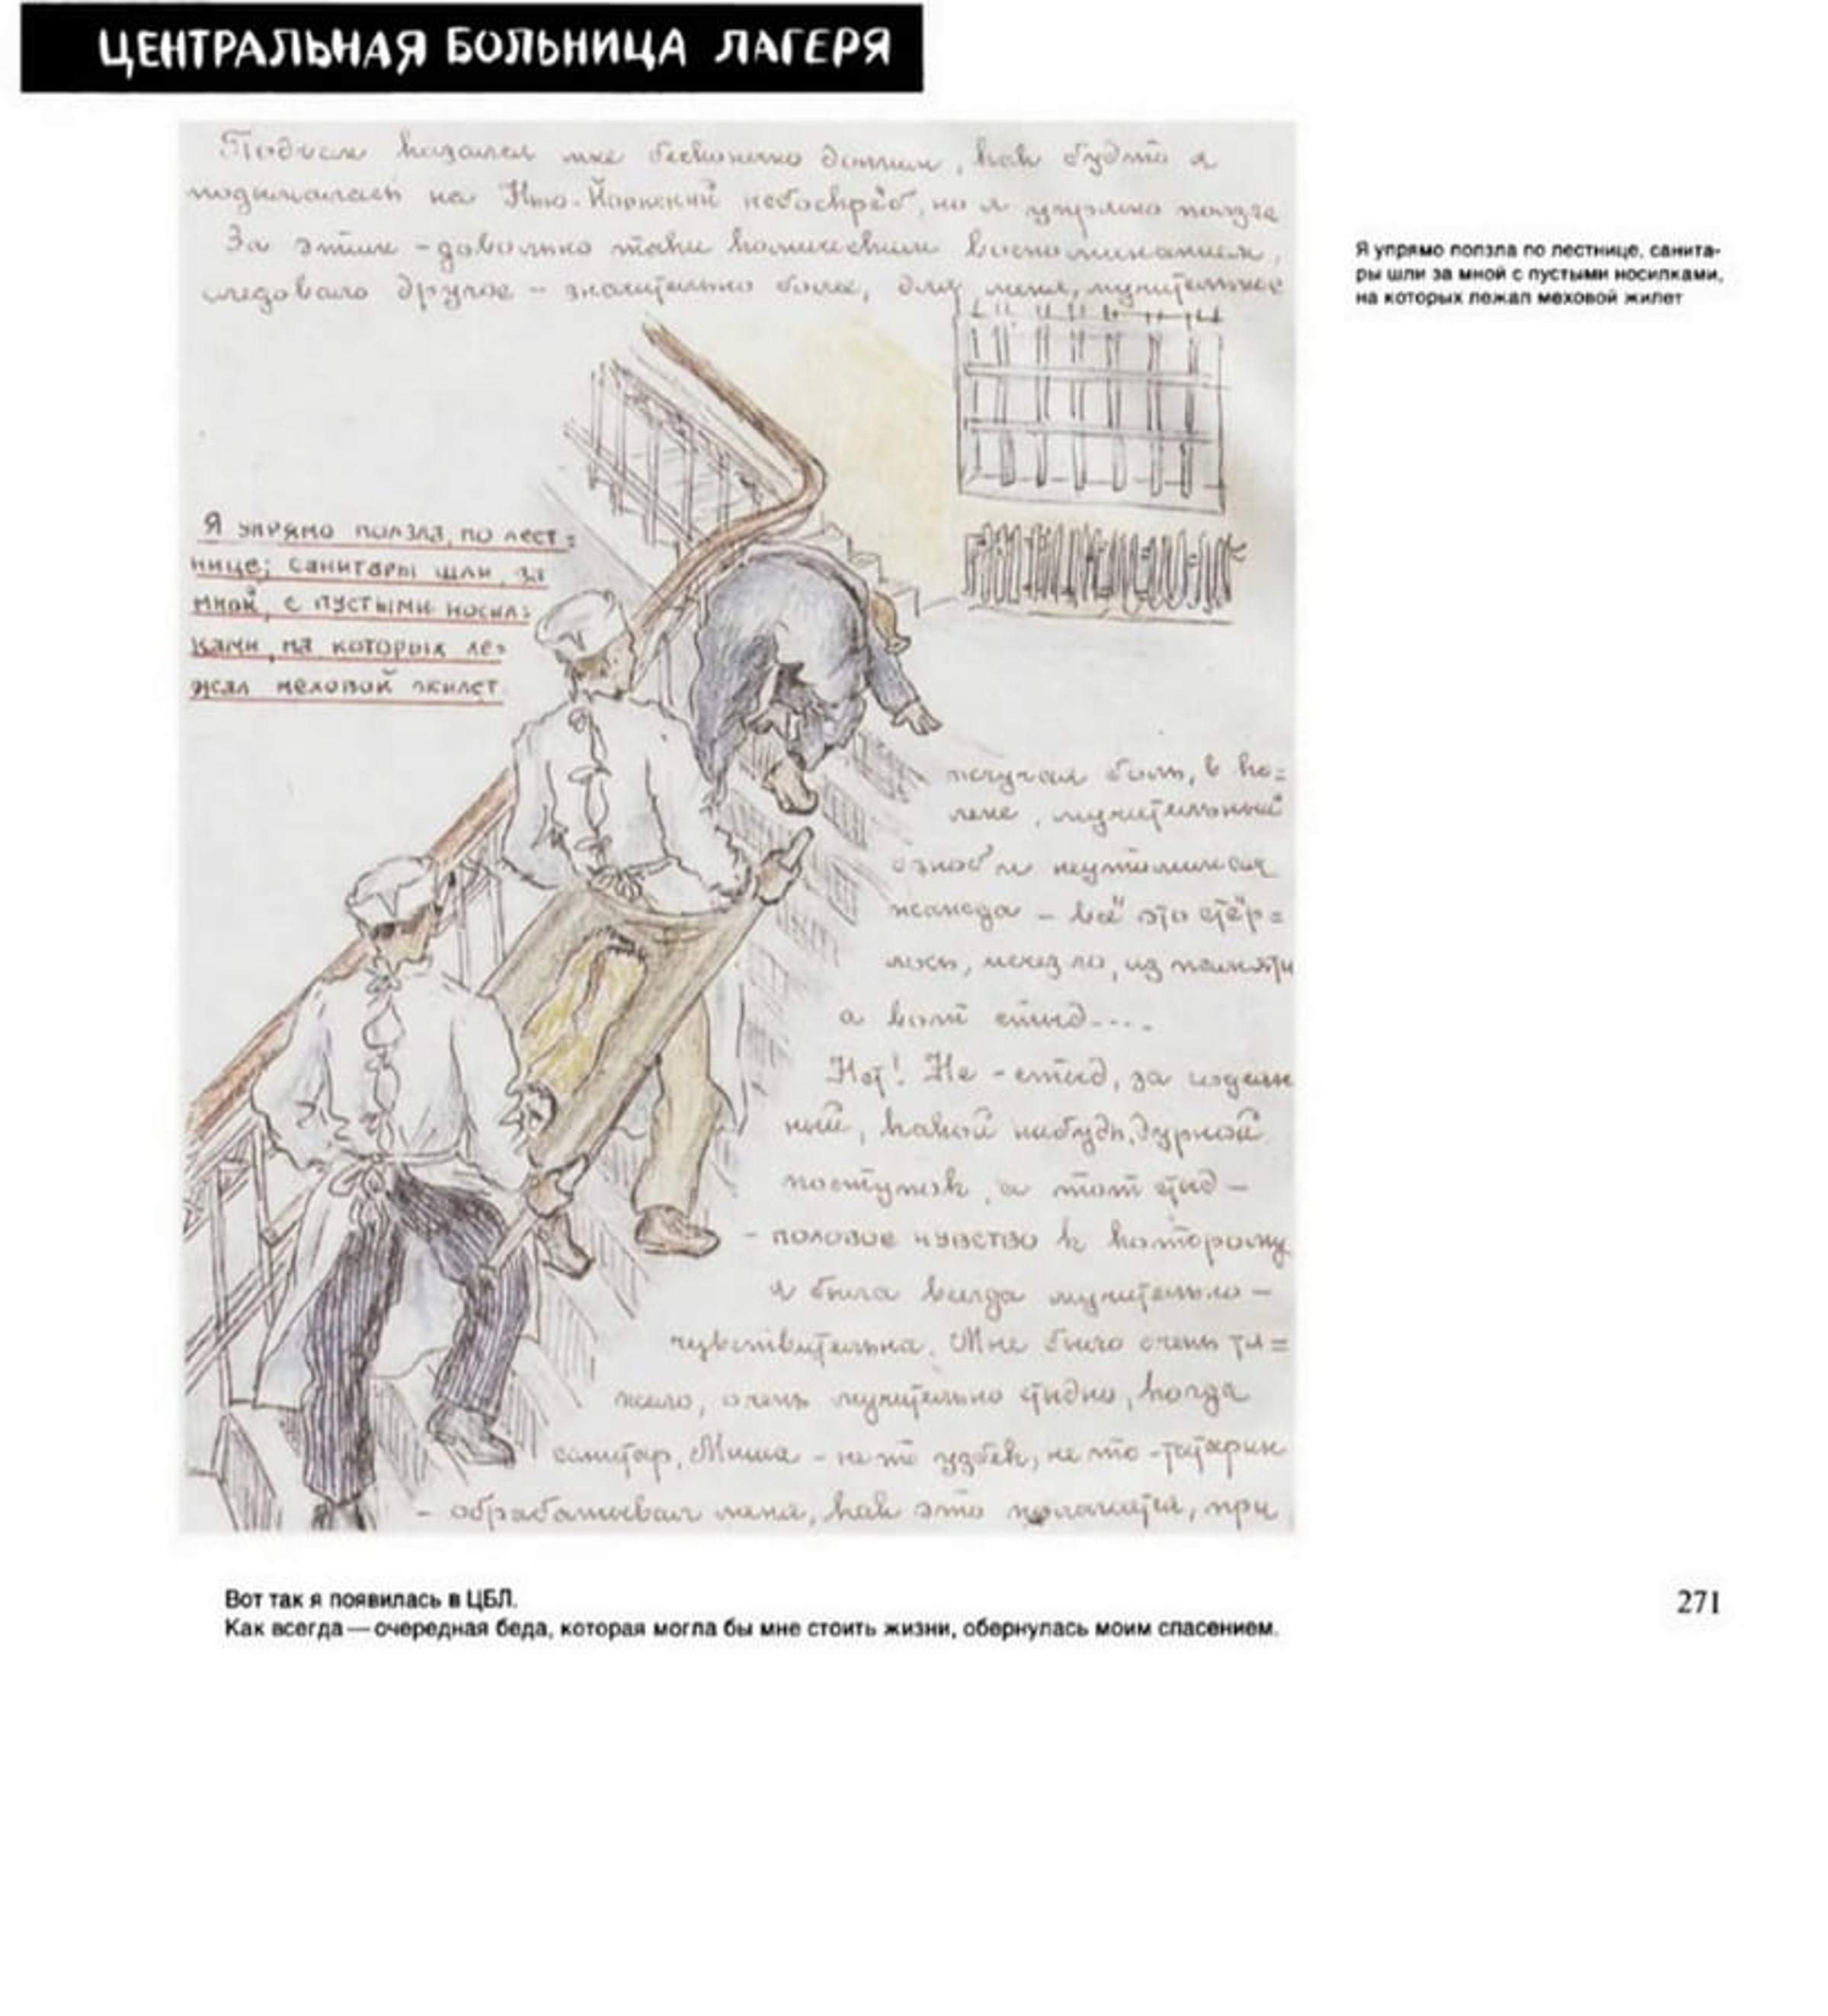 ЦЕНТРАЛЬНАЯ БОЛЬНИЦА ЛАГЕРЯ
Подъем казался мне бесконечно долгим, как будто я
подымалась на Нью-Йоркский небоскрёб, но я упрямо ползла
За этим – довольно таки комическим воспоминанием,
следовало другое – значительно более, для меня, мучительное
Я упрямо ползла по лестнице, санита-
ры шли за мной с пустыми носилками,
на которых лежал меховой жилет
Я упрямо ползла, по лест=
нице; санитары шли за
мной, с пустыми носил=
ками, на которых ле=
жал меховой жилет.
жгучая боль, в ко=
лене, мучительный
озноб и неутолимая
жажда – всё это стёр=
лось, исчезло, из памяти
а вот стыд....
Нет! Не – стыд, за
ный, какой нибудь, дурной
поступок, а тот стыд –
– половое чувство к которому
я была всегда мучительно –
чувствительна. Мне было очень тя=
жело, очень мучительно стыдно, когда
санитар, Миша – не то узбек, не то – татарин
– обрабатывал меня, как это полагается, при
Вот так я появилась в ЦБЛ.
Как всегда — очередная беда, которая могла бы мне стоить жизни, обернулась моим спасением.
271